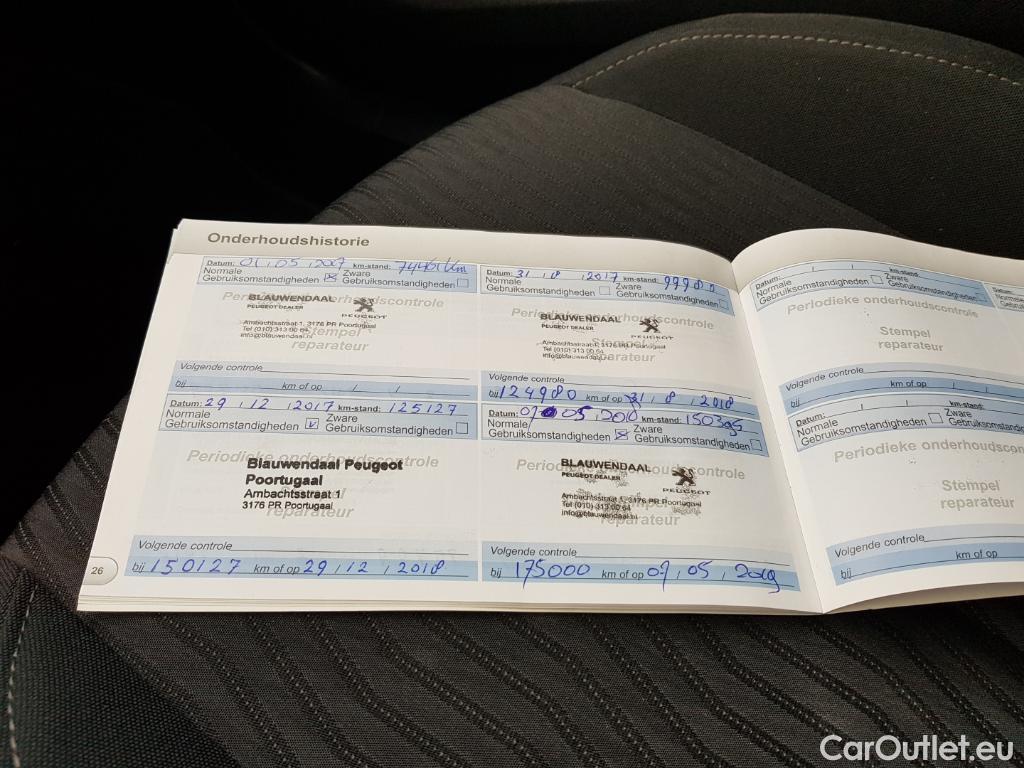 Onderhoudshistorie
Datum: 01 / 05 / 2017 km-stand: 74461 km
Normale Gebruiksomstandigheden Zware Gebruiksomstandigheden
Periodieke onderhoudscontrole
BLAUWENDAAL
PEUGEOT DEALER
PEUGEOT
Ambachtsstraat 1, 3176 PR Poortugaal
Tel (010) 313 00 64
info@blauwendaal.nl
Stempel
reparateur
Volgende controle
bij km of op / /
Datum: 31 / 8 / 2017 km-stand: 99980
Normale Gebruiksomstandigheden Zware Gebruiksomstandigheden
Periodieke onderhoudscontrole
BLAUWENDAAL
PEUGEOT DEALER
PEUGEOT
Ambachtsstraat 1, 3176 PR Poortugaal
Tel (010) 313 00 64
info@blauwendaal.nl
Stempel
reparateur
Volgende controle
bij 124980 km of op 31 / 8 / 2018
Datum: 29 / 12 / 2017 km-stand: 125127
Normale Gebruiksomstandigheden Zware Gebruiksomstandigheden
Periodieke onderhoudscontrole
Blauwendaal Peugeot
Poortugaal
Ambachtsstraat 1
3176 PR Poortugaal
reparateur
Volgende controle
bij 150127 km of op 29 / 12 / 2018
Datum: 07 05 / km-stand: 150395
Normale Gebruiksomstandigheden Zware Gebruiksomstandigheden
Periodieke onderhoudscontrole
BLAUWENDAAL
PEUGEOT DEALER
PEUGEOT
Ambachtsstraat 1, 3176 PR Poortugaal
Tel (010) 313 00 64
info@blauwendaal.nl
reparateur
Volgende controle
bij 175000 km of op 07 / 05 / 2019
26
Datum: / / km-stand:
Normale Gebruiksomstandigheden Zware Gebruiksomstandigheden
Periodieke onderhoudscontrole
Stempel
reparateur
Volgende controle
bij km of op / /
Datum: / / km-stand:
Normale Gebruiksomstandigheden Zware Gebruiksomstandigheden
Periodieke onderhoudscontrole
Stempel
reparateur
Volgende controle
bij km of op
Datum:
CarOutlet.eu